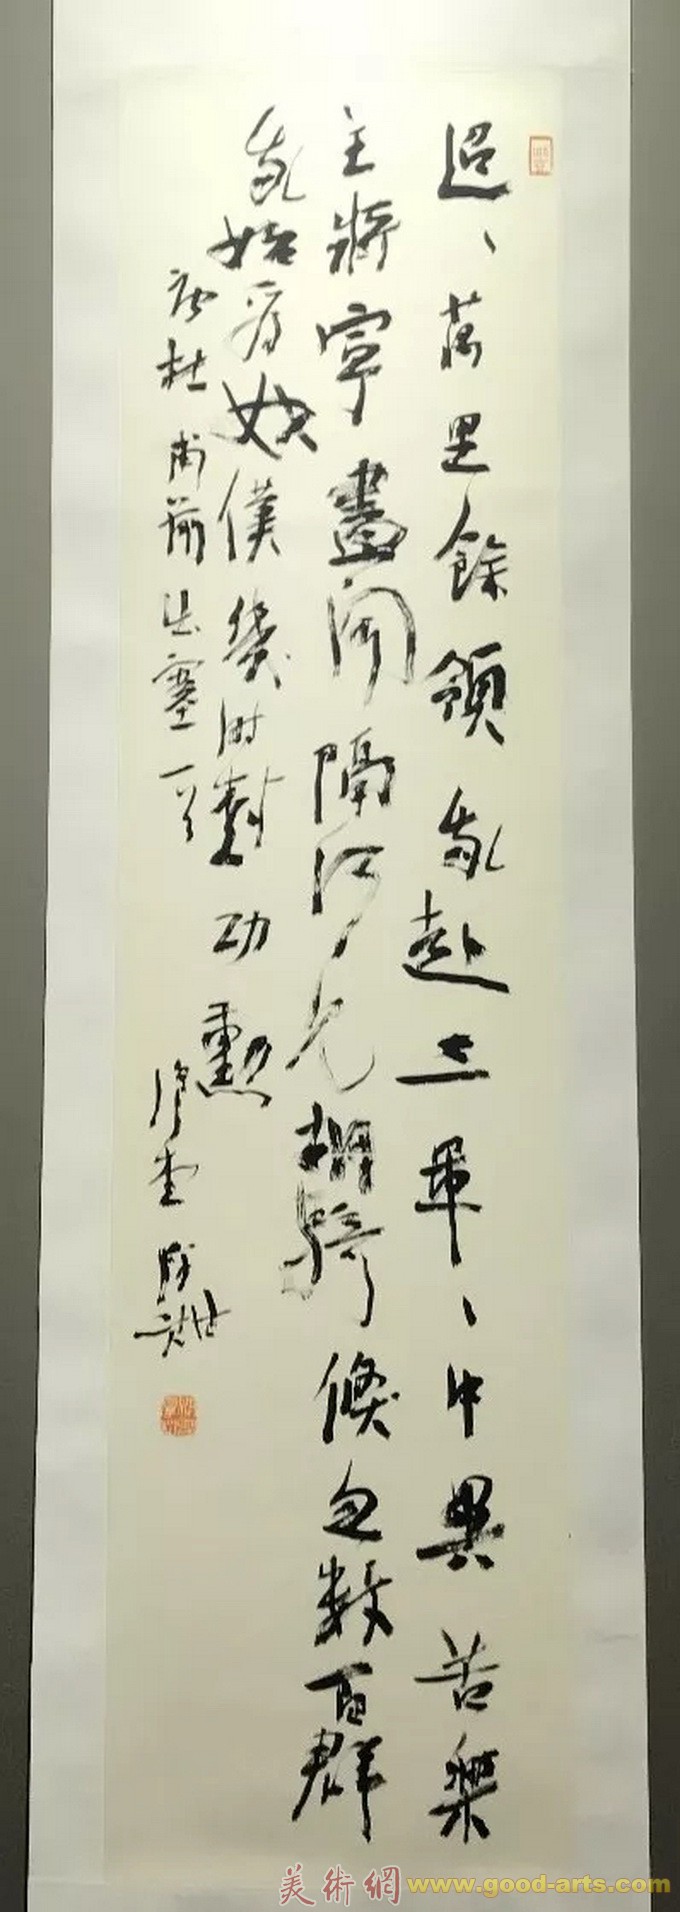 迢、萬里餘領我赴三軍、中異苦樂
主將寧盡聞隔河見胡騎倏忽數百群
我始為奴僕幾時樹功勳
唐杜甫前出塞一首
美術網 www.good-arts.com